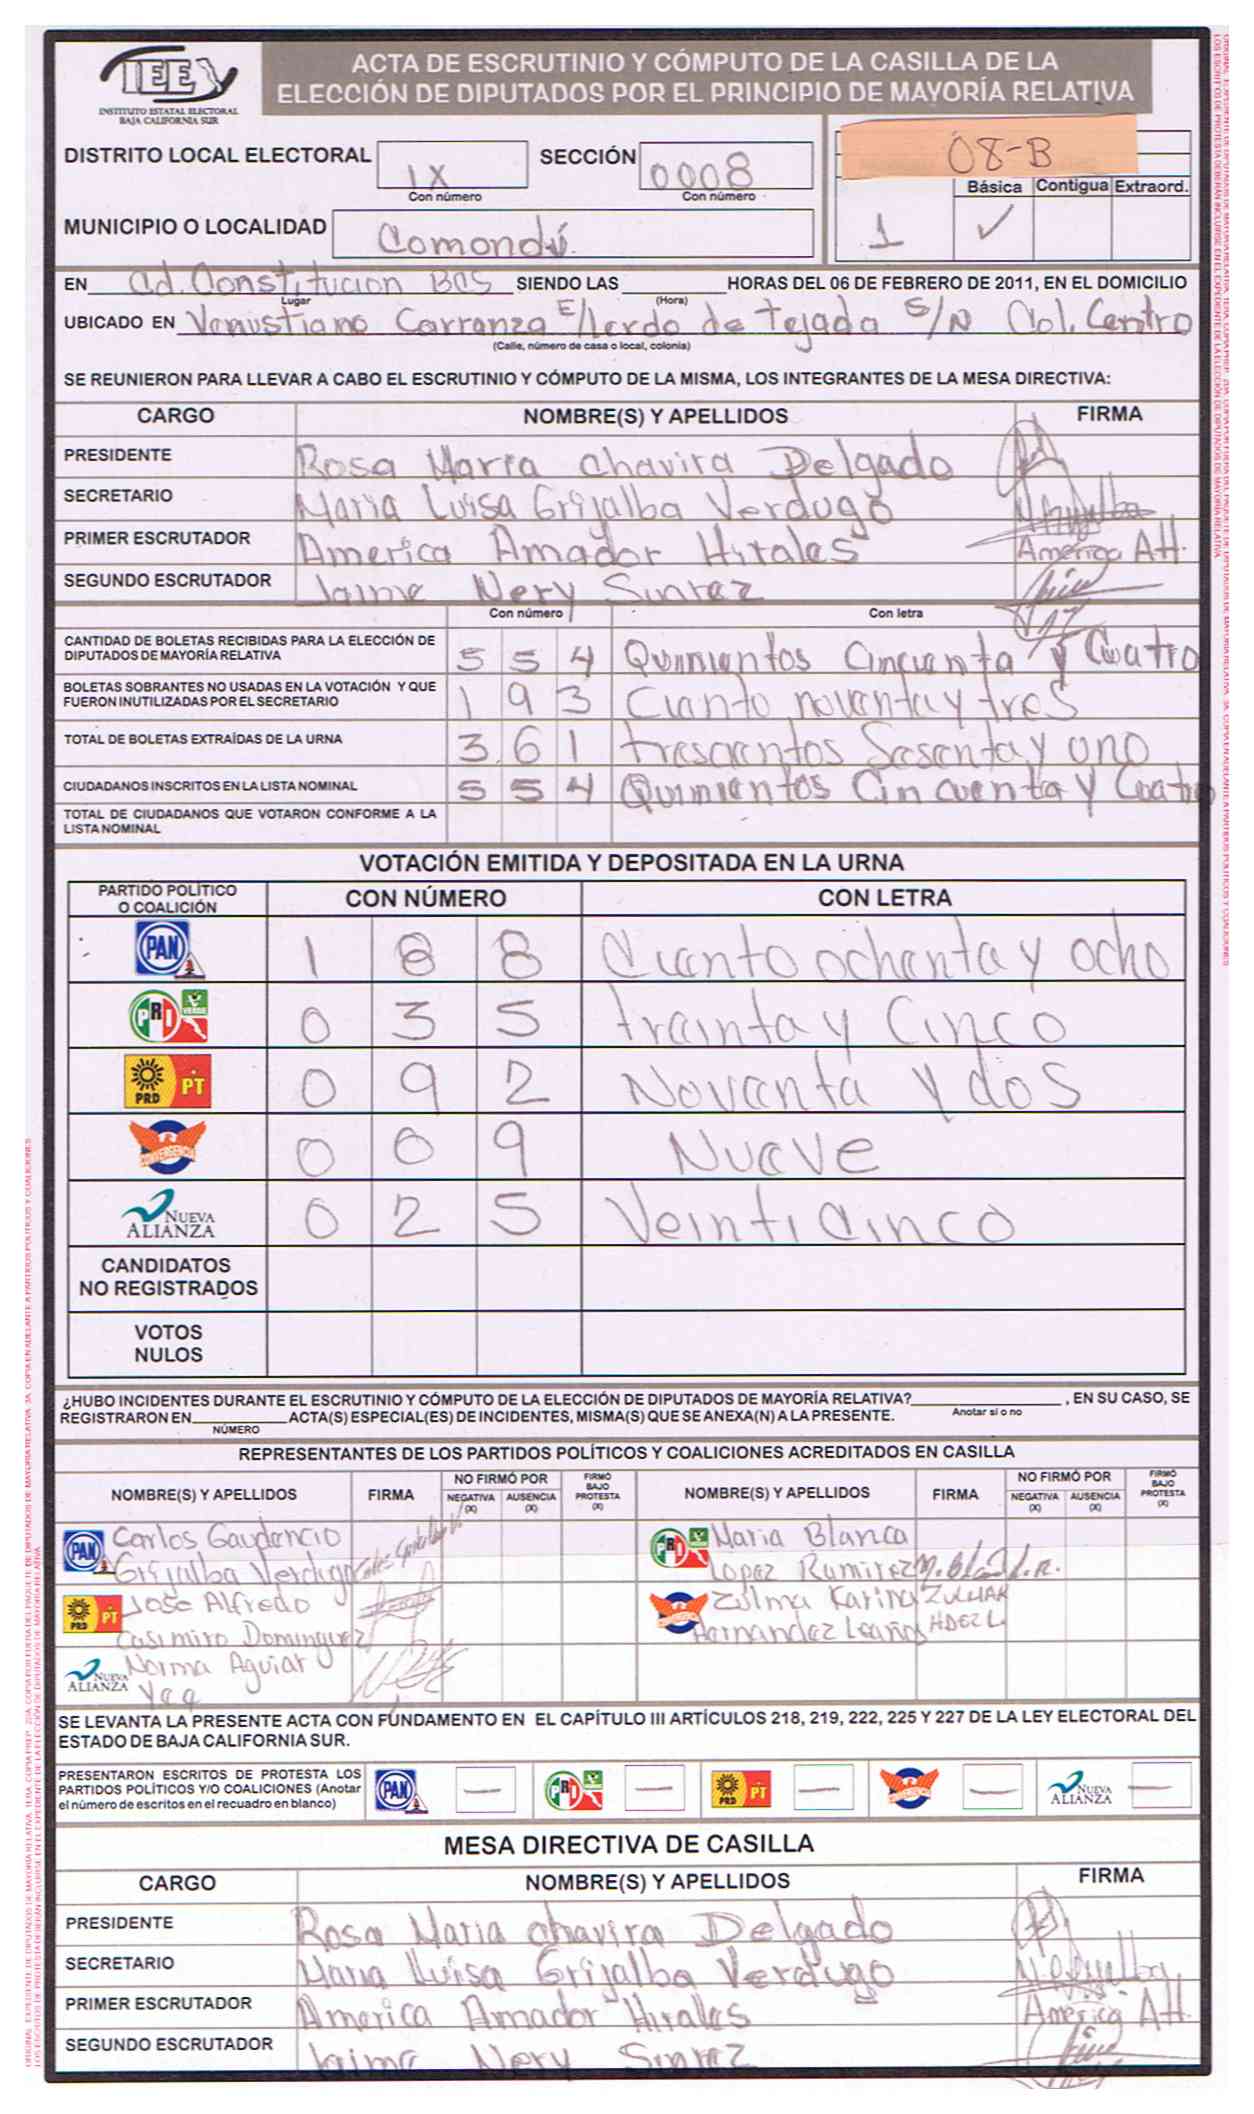 IEE
INSTITUTO ESTATAL ELECTORAL
BAJA CALIFORNIA SUR
ACTA DE ESCRUTINIO Y CÓMPUTO DE LA CASILLA DE LA
ELECCIÓN DE DIPUTADOS POR EL PRINCIPIO DE MAYORÍA RELATIVA
DISTRITO LOCAL ELECTORAL IX SECCIÓN 0008
Con número Con número
08-B
Básica Contigua Extraord.
1 ✓
MUNICIPIO O LOCALIDAD Comondú.
EN Cd. Constitucion BCS SIENDO LAS HORAS DEL 06 DE FEBRERO DE 2011, EN EL DOMICILIO
Lugar (Hora)
UBICADO EN Venustiano Carranza E/Lerdo de tejada S/N Col. Centro
(Calle, número de casa o local, colonia)
SE REUNIERON PARA LLEVAR A CABO EL ESCRUTINIO Y CÓMPUTO DE LA MISMA, LOS INTEGRANTES DE LA MESA DIRECTIVA:
CARGO NOMBRE(S) Y APELLIDOS FIRMA
PRESIDENTE Rosa Maria Chavira Delgado
SECRETARIO Maria Luisa Grijalba Verdugo
PRIMER ESCRUTADOR America Amador Hirales America AH.
SEGUNDO ESCRUTADOR Jaime Nery Suarez
Con número Con letra
CANTIDAD DE BOLETAS RECIBIDAS PARA LA ELECCIÓN DE
DIPUTADOS DE MAYORÍA RELATIVA 5 5 4 Quinientos Cincuenta y Cuatro
BOLETAS SOBRANTES NO USADAS EN LA VOTACIÓN Y QUE
FUERON INUTILIZADAS POR EL SECRETARIO 1 9 3 Ciento noventa y tres
TOTAL DE BOLETAS EXTRAÍDAS DE LA URNA 3 6 1 trescientos Sesenta y uno
CIUDADANOS INSCRITOS EN LA LISTA NOMINAL 5 5 4 Quinientos Cincuenta y Cuatro
TOTAL DE CIUDADANOS QUE VOTARON CONFORME A LA
LISTA NOMINAL
VOTACIÓN EMITIDA Y DEPOSITADA EN LA URNA
PARTIDO POLÍTICO
O COALICIÓN CON NÚMERO CON LETRA
PAN 1 8 8 Ciento ochenta y ocho
PRI VERDE 0 3 5 treinta y Cinco
PRD PT 0 9 2 Noventa y dos
CONVERGENCIA 0 0 9 Nueve
NUEVA ALIANZA 0 2 5 Veinticinco
CANDIDATOS
NO REGISTRADOS
VOTOS
NULOS
¿HUBO INCIDENTES DURANTE EL ESCRUTINIO Y CÓMPUTO DE LA ELECCIÓN DE DIPUTADOS DE MAYORÍA RELATIVA? , EN SU CASO, SE
Anotar sí o no
REGISTRARON EN ACTA(S) ESPECIAL(ES) DE INCIDENTES, MISMA(S) QUE SE ANEXA(N) A LA PRESENTE.
NÚMERO
REPRESENTANTES DE LOS PARTIDOS POLÍTICOS Y COALICIONES ACREDITADOS EN CASILLA
NOMBRE(S) Y APELLIDOS FIRMA NO FIRMÓ POR NEGATIVA (X) AUSENCIA (X) FIRMÓ BAJO PROTESTA (X) NOMBRE(S) Y APELLIDOS FIRMA NO FIRMÓ POR NEGATIVA (X) AUSENCIA (X) FIRMÓ BAJO PROTESTA (X)
PAN Carlos Gaudencio PRI Maria Blanca
Grijalba Verdugo Lopez Ramirez
PRD PT Jose Alfredo Zulma Karina ZULMA K
Casimiro Dominguez Hernandez Leaños HDEZ L.
NUEVA ALIANZA Norma Aguiar
SE LEVANTA LA PRESENTE ACTA CON FUNDAMENTO EN EL CAPÍTULO III ARTÍCULOS 218, 219, 222, 225 Y 227 DE LA LEY ELECTORAL DEL
ESTADO DE BAJA CALIFORNIA SUR.
PRESENTARON ESCRITOS DE PROTESTA LOS
PARTIDOS POLÍTICOS Y/O COALICIONES (Anotar
el número de escritos en el recuadro en blanco) PAN — PRI — PRD PT — — NUEVA ALIANZA —
MESA DIRECTIVA DE CASILLA
CARGO NOMBRE(S) Y APELLIDOS FIRMA
PRESIDENTE Rosa Maria Chavira Delgado
SECRETARIO Maria Luisa Grijalba Verdugo
PRIMER ESCRUTADOR America Amador Hirales America AH.
SEGUNDO ESCRUTADOR Jaime Nery Suarez